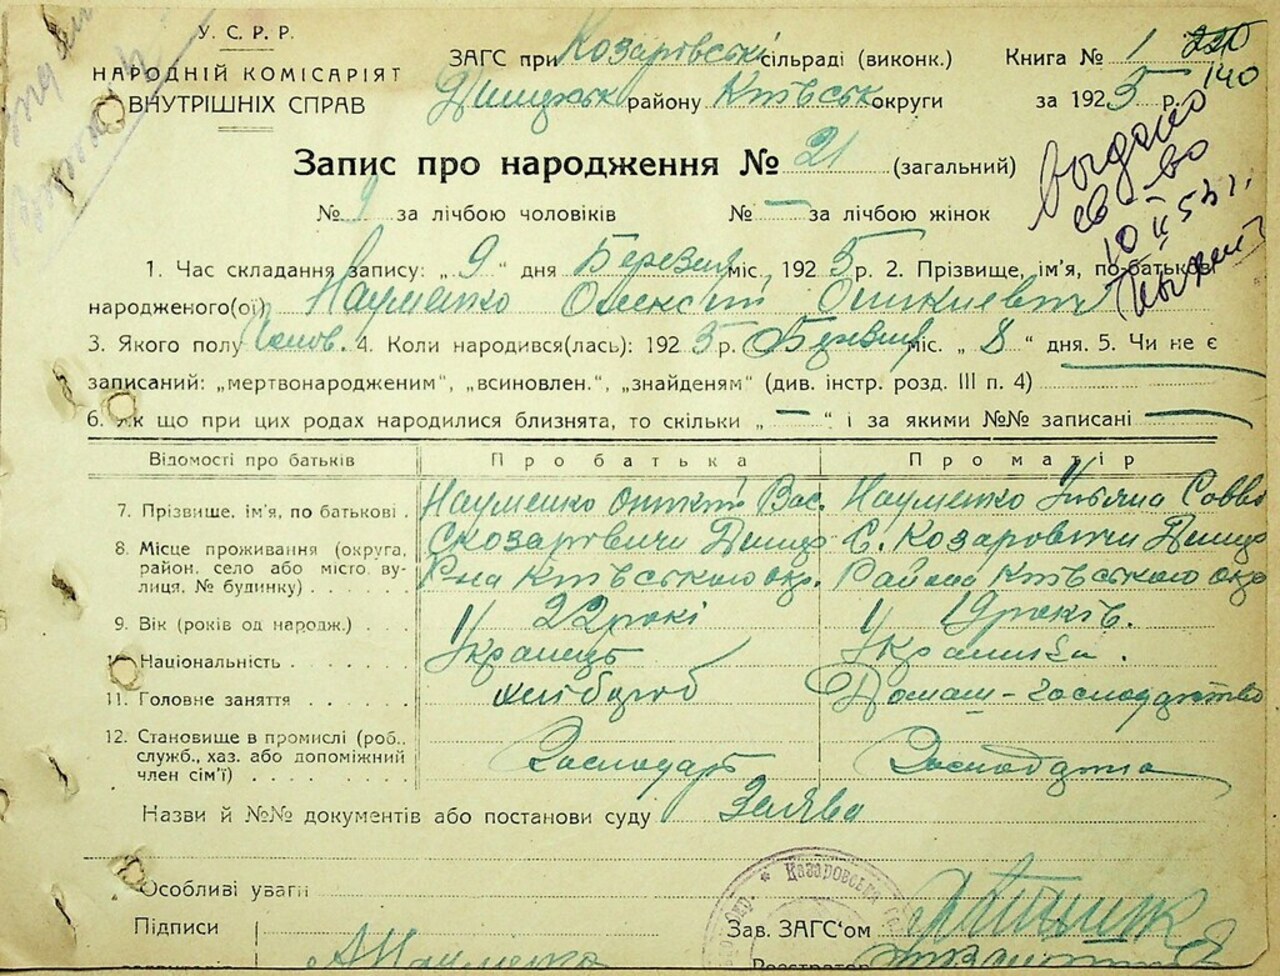 У. С. Р. Р.
НАРОДНІЙ КОМІСАРІЯТ
ВНУТРІШНІХ СПРАВ
ЗАГС при Козаровські сільраді (виконк.)
Димерськ району Київськ округи
Книга № 1
140
за 1925 р.
Выдано
св-во
10 II 53 г.
Запис про народження № 21 (загальний)
№ 9 за лічбою чоловіків № — за лічбою жінок
1. Час складання запису: „ 9 “ дня Березня міс. 1925 р. 2. Прізвище, ім'я, по-батькові
народженого(ої) Науменко Олексій
3. Якого полу Чолов. 4. Коли народився(лась): 1925 р. Березня міс. „ 8 “ дня. 5. Чи не є
записаний: „мертвонародженим“, „всиновлен.“, „знайденям“ (див. інстр. розд. III п. 4)
6. Як що при цих родах народилися близнята, то скільки „ — “ і за якими №№ записані —
Відомості про батьків Про батька Про матір
7. Прізвище, ім'я, по батькові . Науменко Вас. Науменко Уляна Савв
8. Місце проживання (округа, район, село або місто, вулиця, № будинку) . . . . . .
С Козаровичи Димер С. Козаровичи Димер
Р-на Київського окр. Района Київського окр
9. Вік (років од народж.) . 22 роки 19 років.
10. Національність . . . . . . Українець Українка .
11. Головне заняття . . . . . хлібороб Домаш-господарство
12. Становище в промислі (роб., служб., хаз. або допоміжний член сім'ї) . . . . . . . . Господарь
Назви й №№ документів або постанови суду Заява
Особливі уваги
Казаровська
Підписи
Зав. ЗАГС'ом
А Науменко
Реєстратор